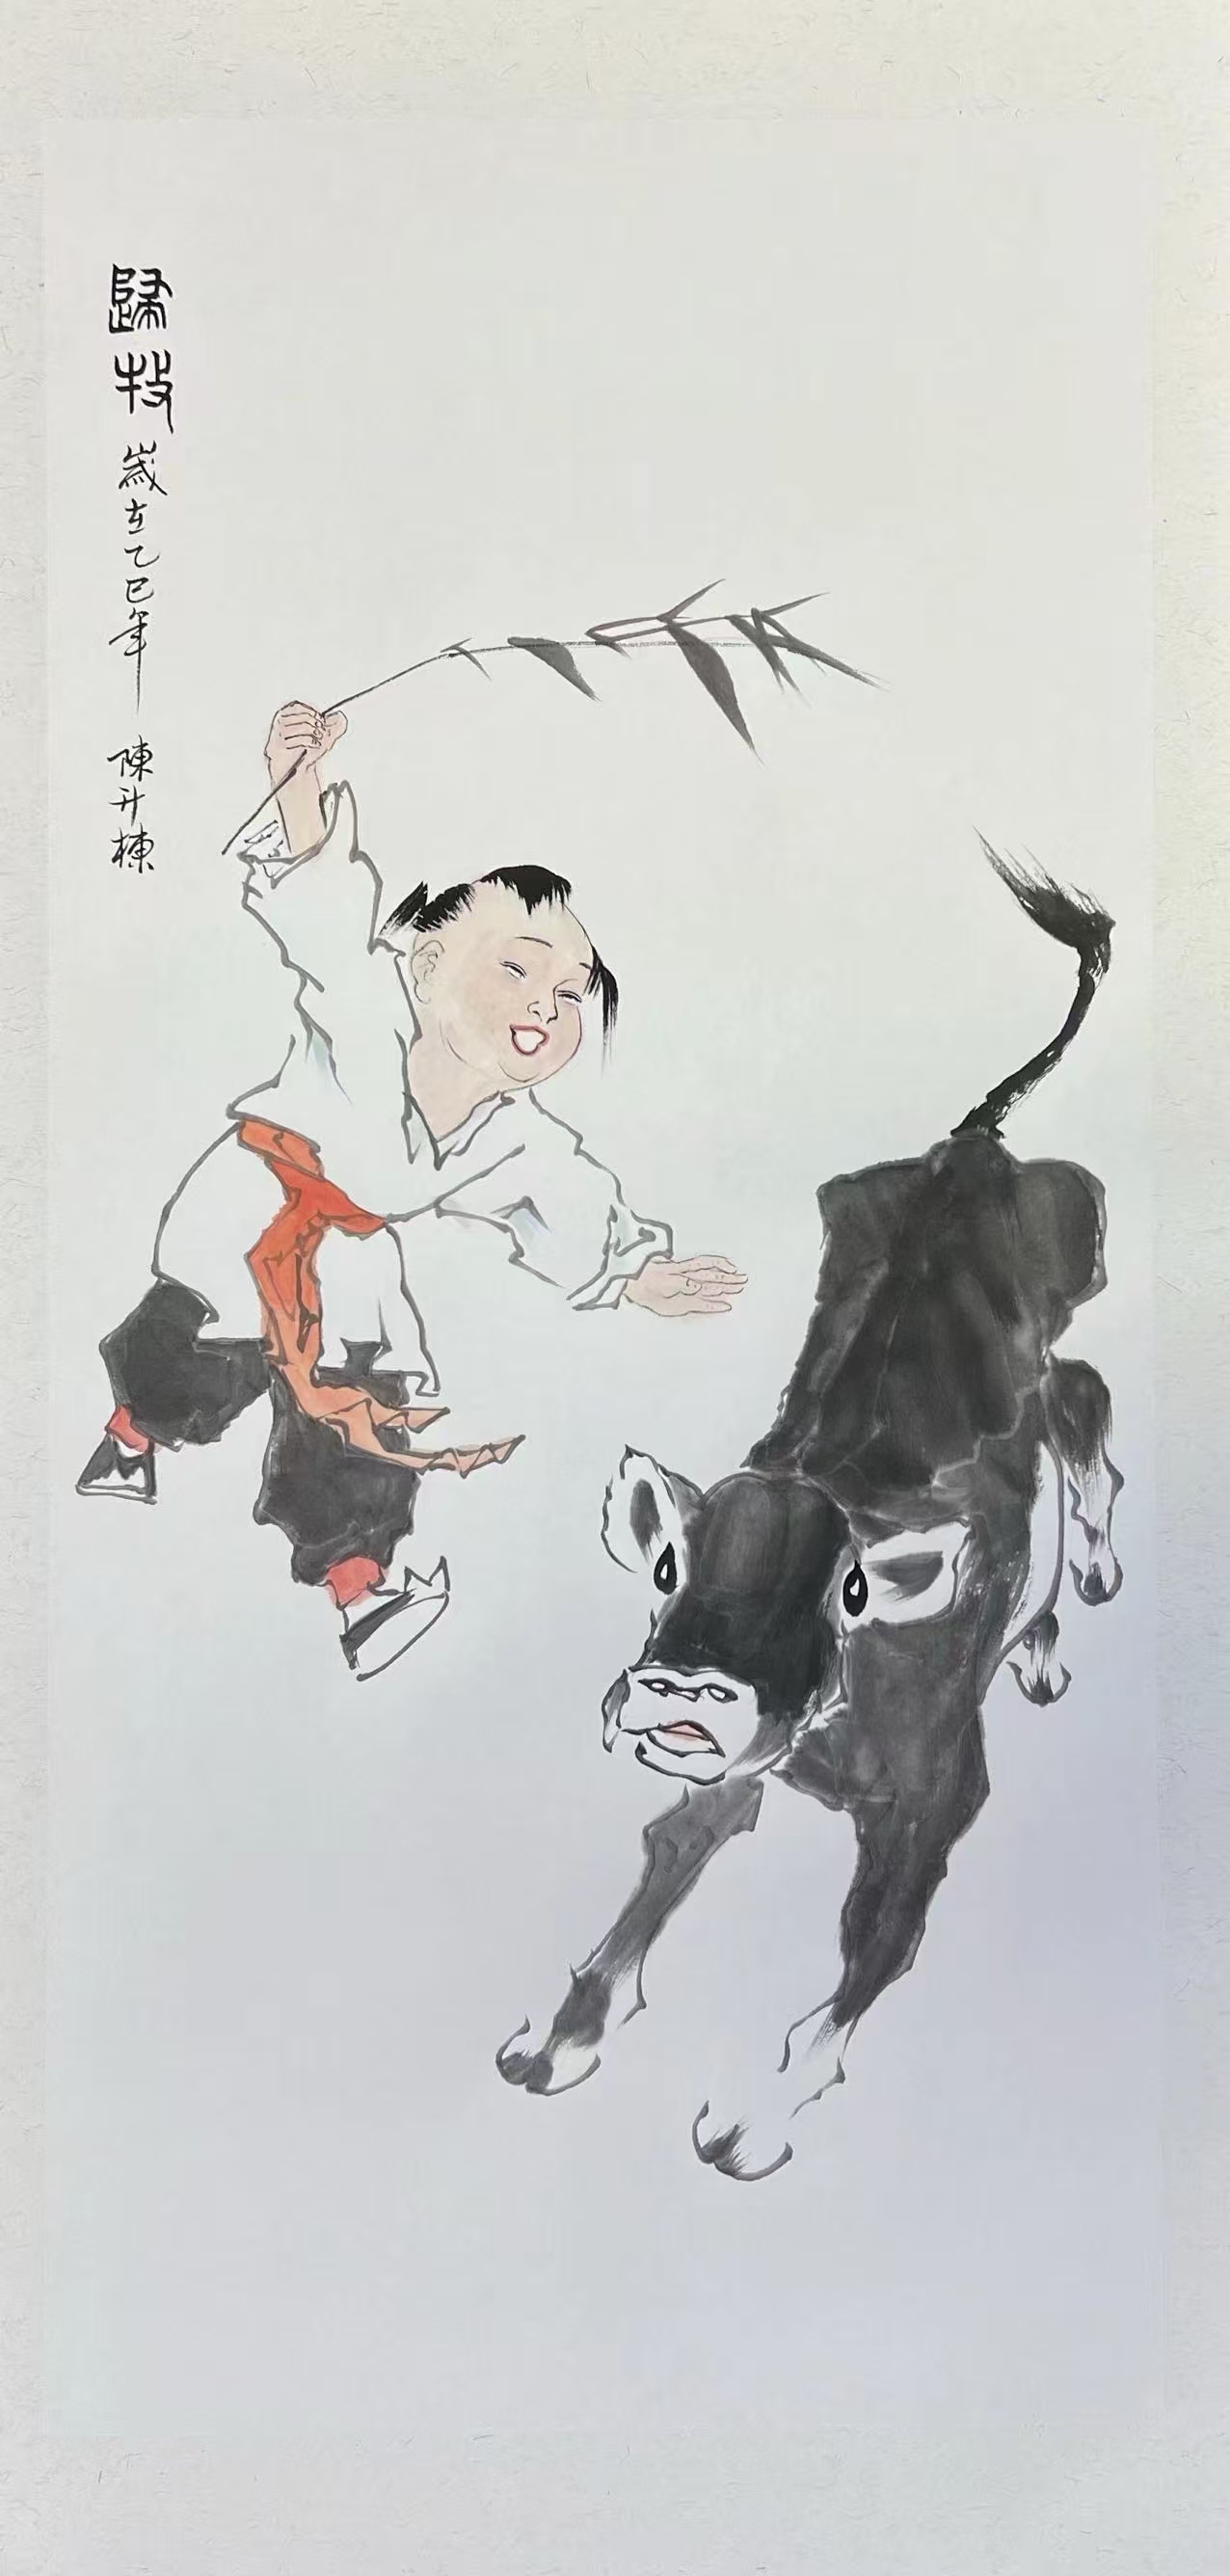 歸牧 歲在乙巳年 陳升棟